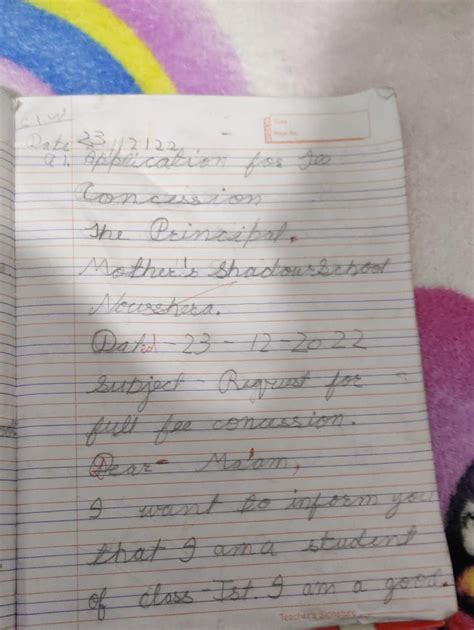 C.W
Date 23/12/22
Q1. Application for Fee
Concussion
The Principal.
Mother's Shadow School
Nowshera.
Dated - 23 - 12 - 2022
Subject - Request for
full fee concussion.
Dear - Ma'am,
I want to inform you
that I am a student
of class - Ist. I am a good.
Teacher's Signature